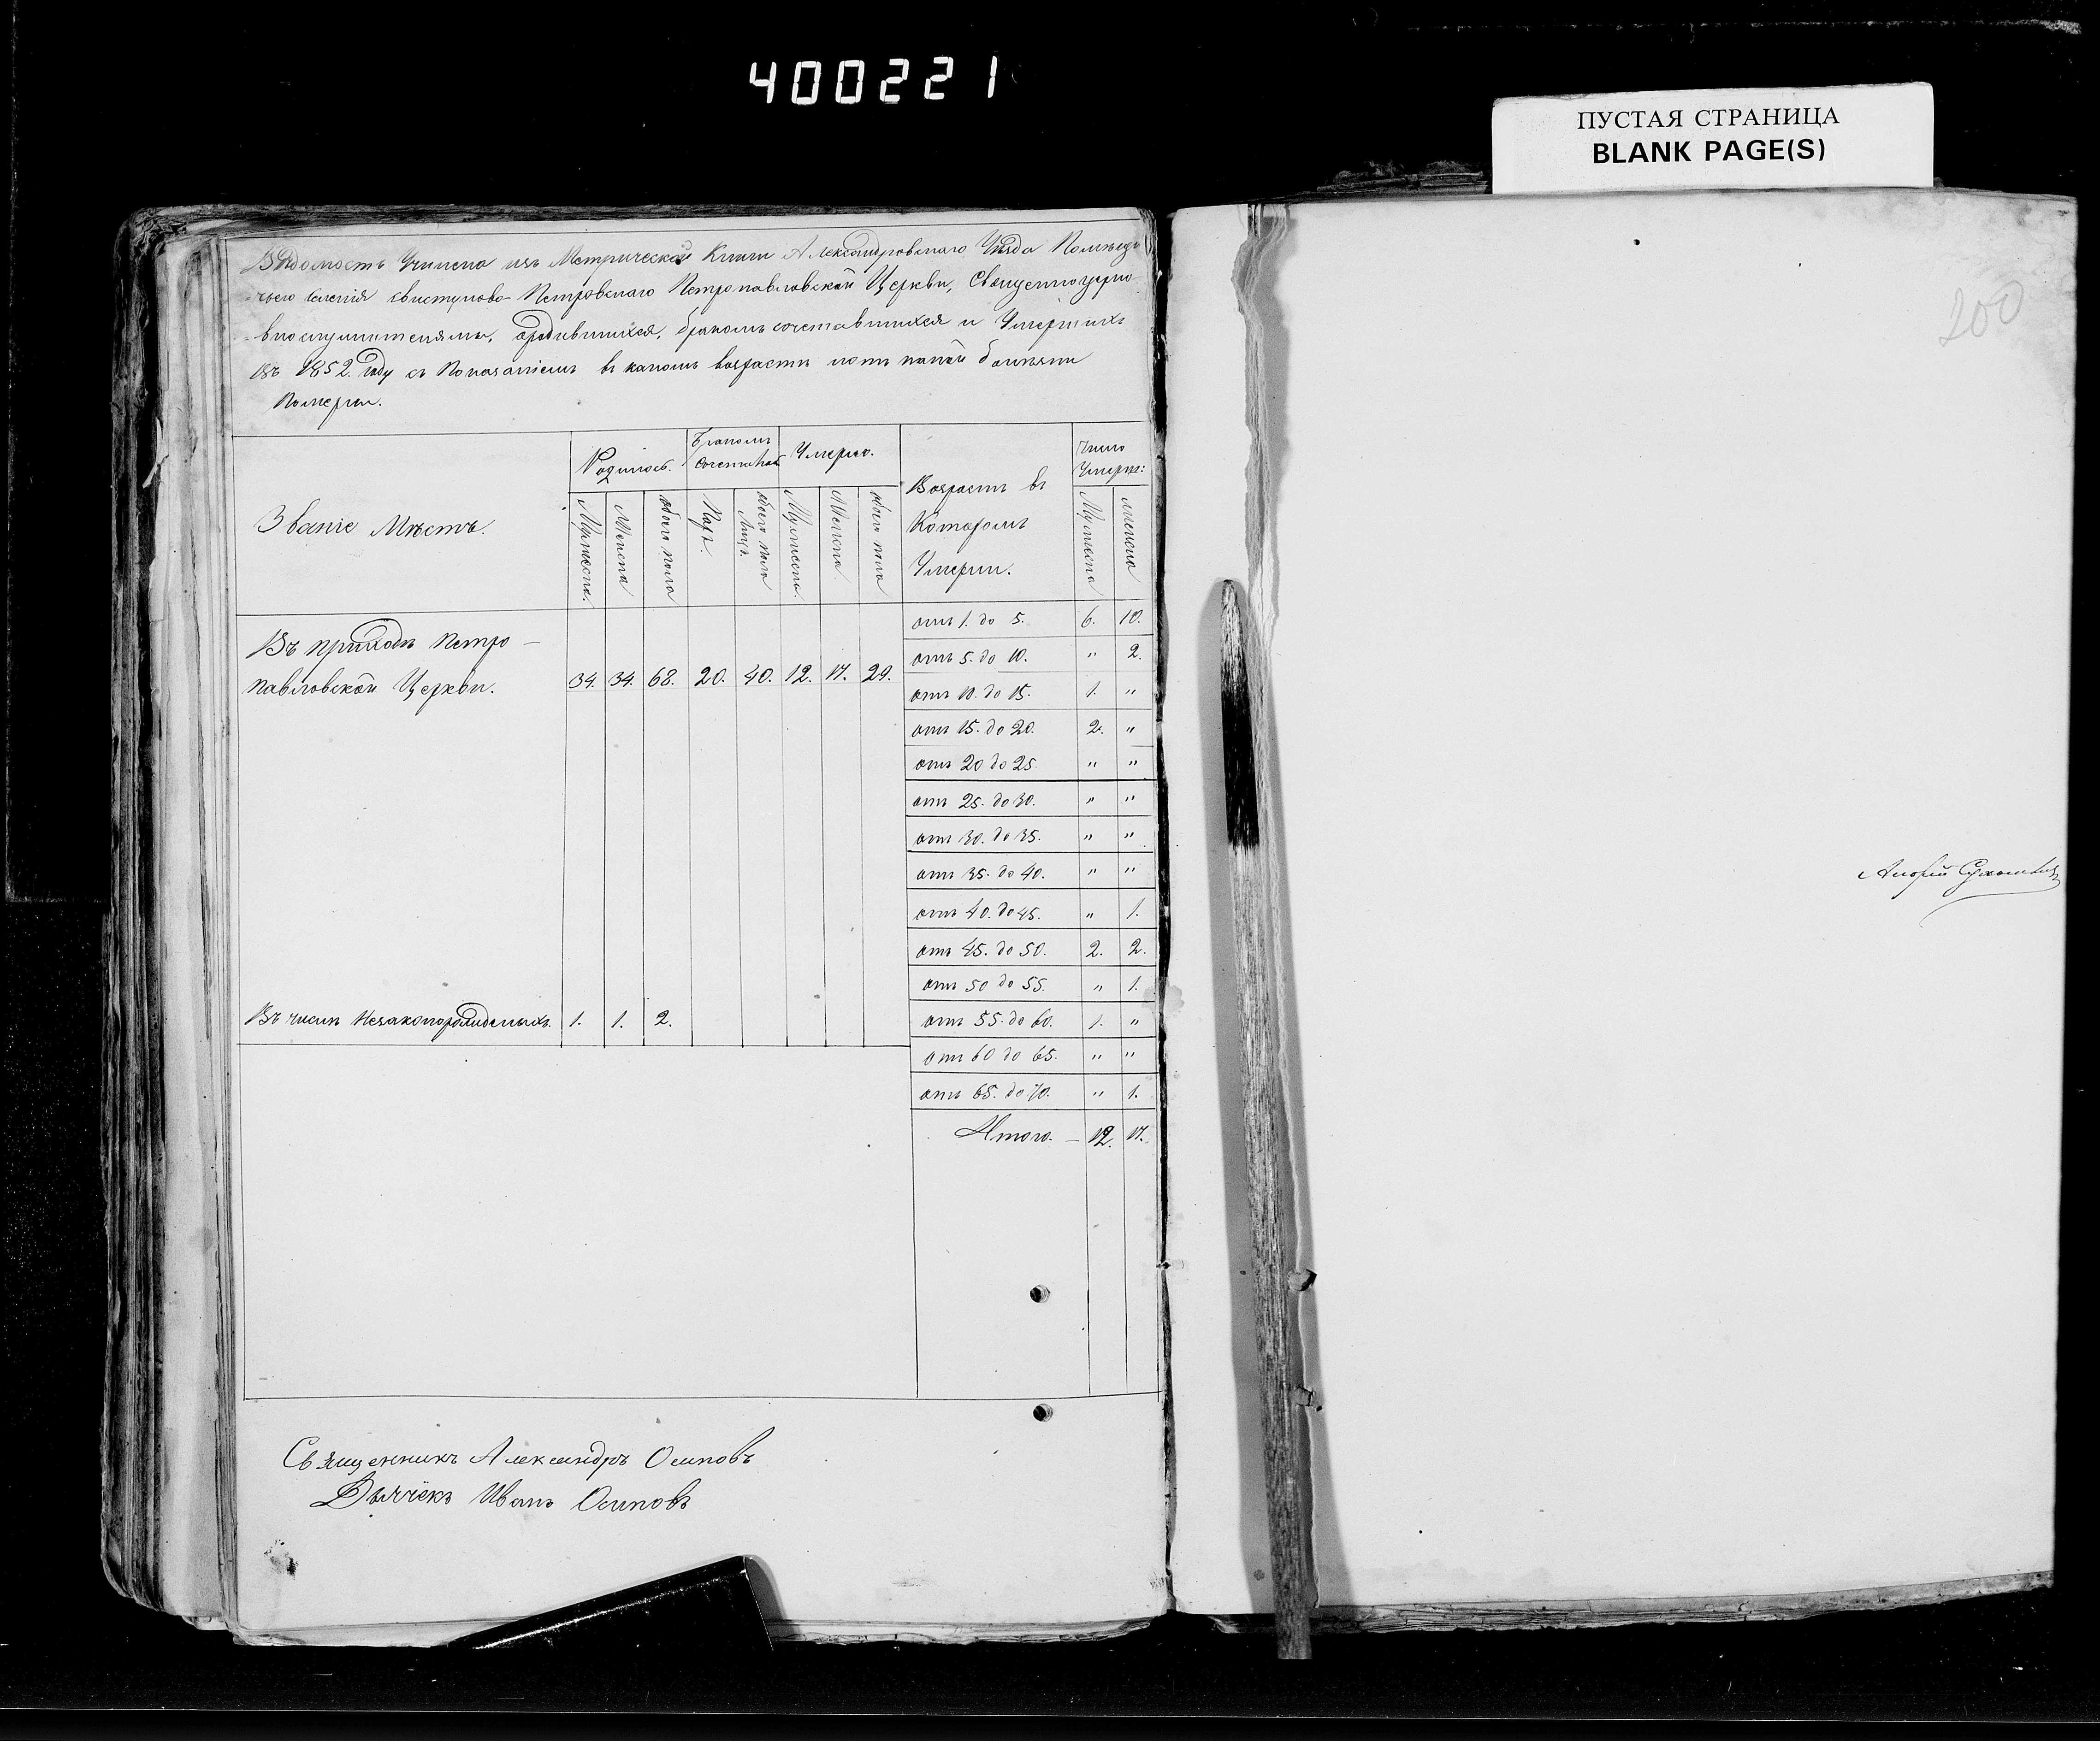 400221
ПУСТАЯ СТРАНИЦА
BLANK PAGE(S)
200
Вѣдомость Учинена изъ Метрической Книги Александровскаго Уѣзда Помѣщи-
-чьего селенія Свистуново-Петровскаго Петропавловской Церкви, Священноцерко-
-внослужителями, ородившихся, бракомъ сочетавшихся и Умершихъ
въ 1852. Году съ Показаніемъ въ какомъ возрастѣ иотъ какой болѣзни
Померли.
Званіе Мѣстъ.
Родилось.
Бракомъ
Умерло.
Возрастъ въ
Которомъ
Умерли.
Число
Умерш:
Мужеска.
Женска
обоего пола
Паръ.
обоего пола
Лицъ.
Мужеска.
Женска
обоего пола
Мужеска
женска
Въ приходѣ Петро-
павловской Церкви. 34. 34. 68. 20. 40. 12. 17. 29.
Въ числѣ Незаконорожденыхъ. 1. 1. 2.
отъ 1. до 5. 6. 10.
отъ 5. до 10. " 2.
отъ 10. до 15. 1. "
отъ 15. до 20. 2. "
отъ 20 до 25 " "
отъ 25. до 30. " "
отъ 30. до 35. " "
отъ 35. до 40. " "
отъ 40. до 45. " 1.
отъ 45. до 50. 2. 2.
отъ 50 до 55. " 1.
отъ 55. до 60. 1. "
отъ 60 до 65. " "
отъ 65. до 70. " 1.
Итого. – 12. 17.
Священникъ Александръ Осиповъ
Дьячёкъ Иванъ Осиповъ